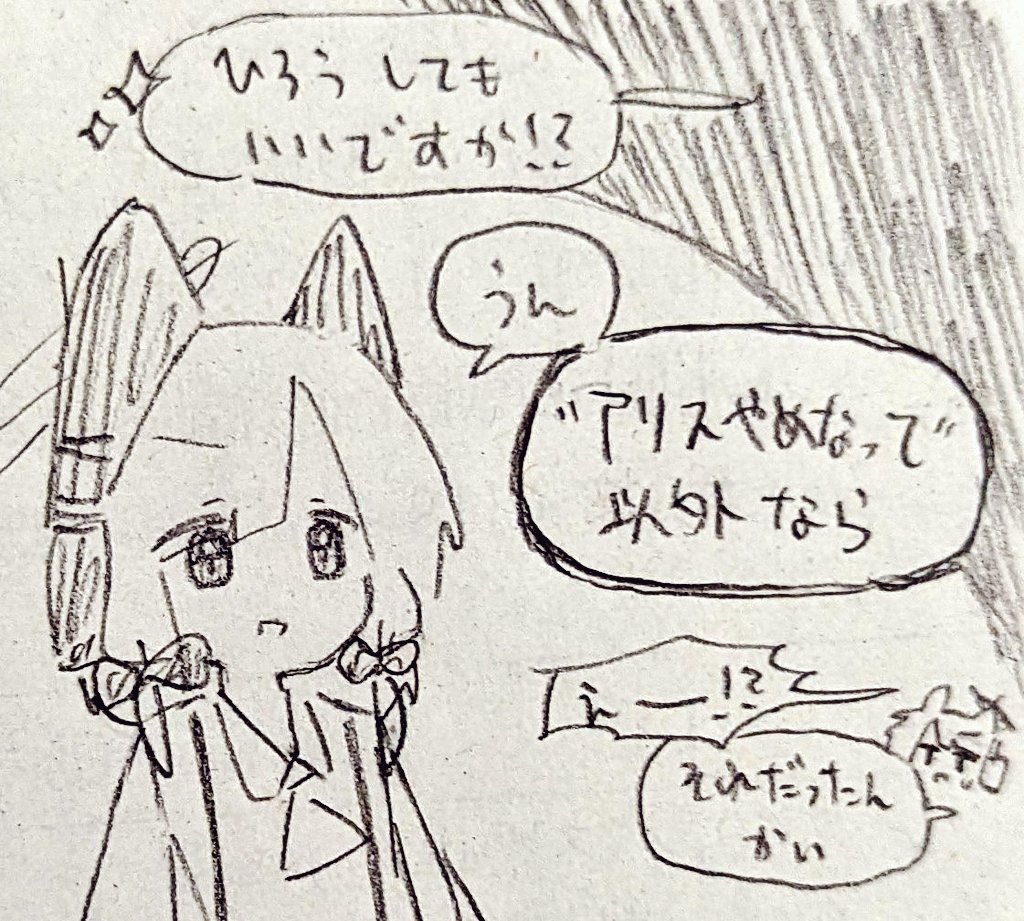 ひろうしても
いいですか!?
うん
"アリスやめなって"
以外なら
えー!?
それだったん
かい